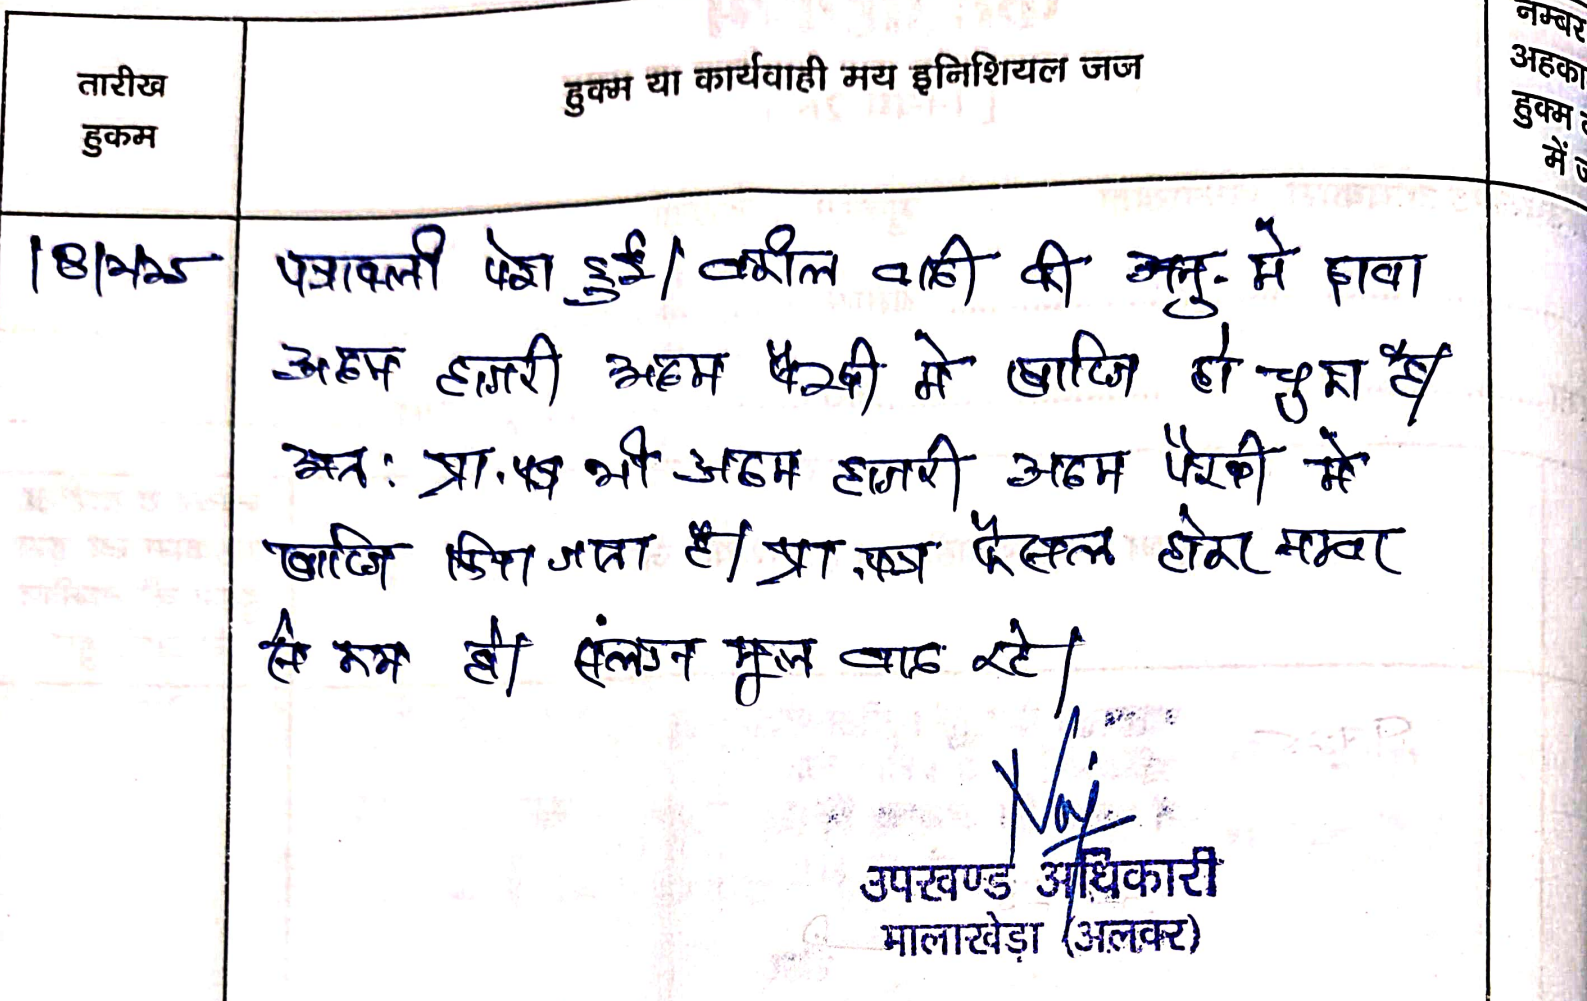 तारीख
हुकम
हुक्म या कार्यवाही मय इनिशियल जज
नम्बर
अहका
हुक्म
में ज
पत्रावली पेश हुई। वकील वादी की अनु. में दावा
अदम हाजरी अदम पैरवी में खारिज हो चुका है।
अत: प्रा. पत्र भी अदम हाजरी अदम पैरवी में
खारिज किया जाता है। प्रा. पत्र फैसल होकर नम्बर
से कम हो। संलग्न मूल वाद रहे।
उपखण्ड अधिकारी
मालाखेड़ा (अलवर)